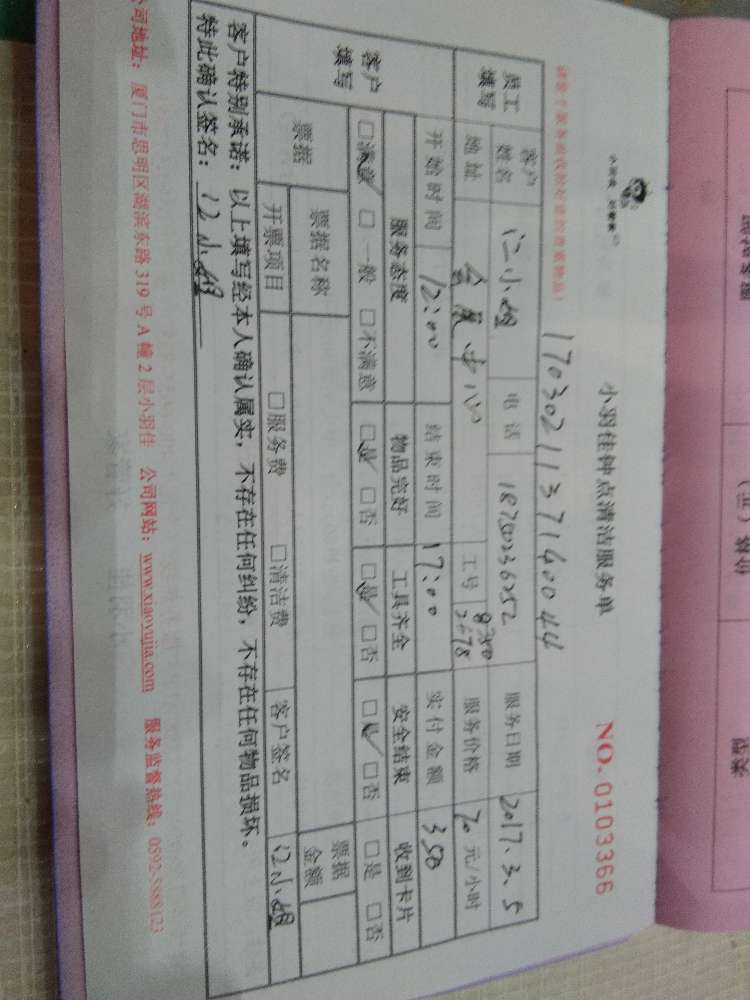 小羽佳钟点清洁服务单
NO.0103366
1703021137140044
员工填写
客户姓名 江小姐 电话 18750236252 服务日期 2017.3.5
地址 工号 服务价格 70 元/小时
开始时间 12:00 结束时间 17:00 实付金额 350
客户填写
服务态度 物品完好 工具齐全 安全结束 收到卡片
□满意 □一般 □不满意 □是 □否 □是 □否 □是 □否 □是 □否
票据 票据名称 票据金额
开票项目 □服务费 □清洁费 客户签名 江小姐
客户特别承诺：以上填写经本人确认属实，不存在任何纠纷，不存在任何物品损坏。
特此确认签名：江小姐
公司地址：厦门市思明区湖滨东路 319 号 A 幢 2 层小羽佳 公司网站：www.xiaoyujia.com 服务监督热线：0592-5888123
类型